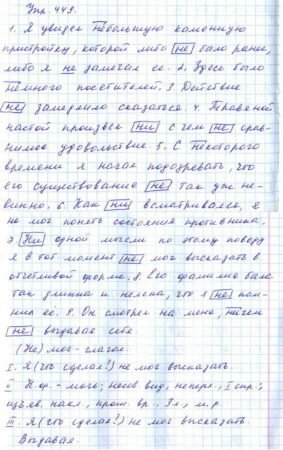 Упр. 449.
1. Я увидел небольшую каменную
пристройку, которой либо не было ранее,
либо я не замечал ее. 2. Здесь было
немного посетителей. 3 Действие
не замедлило сказаться. 4.
настой произвел ни с чем не срав-
нимое удовольствие. 5. С некоторого
времени я начал подозревать, что
его существование не так уж не-
винно. 6. Как ни всматривался, я
не мог понять состояния противника.
7. Ни одной мысли по этому поводу
я в тот момент не мог высказать в
отчетливой форме. 8. Его фамилия была
так длинна и неясна, что я не пом-
нил ее. 9. Он смотрел на меня, ничем
не выдавая себя.
(Не) мог - глагол.
I. Я (что сделал?) не мог высказать.
II. Н.ф. - мочь; несов вид, неперех., I спр.;
изъяв. накл., прош. вр., 3 л., м.р.
III. Я (что сделал?) не мог высказать.
Выдавая.